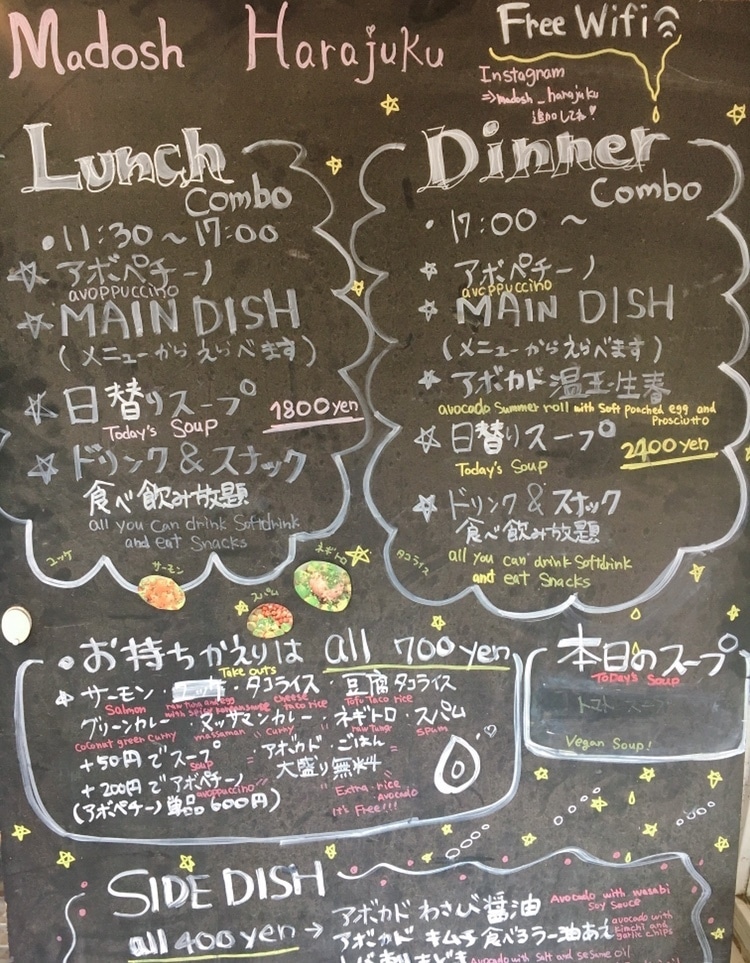 Madosh Harajuku
Free Wifi
Instagram
⇒ madosh_harajuku
追加してね♡
Lunch
Combo
・11:30～17:00
☆アボペチーノ
avoppuccino
☆MAIN DISH
(メニューからえらべます)
☆日替りスープ
Today's Soup
1800yen
☆ドリンク&スナック
食べ飲み放題
all you can drink Softdrink
and eat Snacks
Dinner
Combo
・17:00 ～
☆アボペチーノ
avoppuccino
☆MAIN DISH
(メニューからえらべます)
☆アボカド温玉生春
avocado Summer roll with Soft poached egg and
Prosciutto
☆日替りスープ
Today's Soup
2400yen
☆ドリンク&スナック
食べ飲み放題
all you can drink Softdrink
and eat Snacks
ユッケ
サーモン
スパム
ネギトロ
タコライス
・お持ちかえりは all 700yen
Take outs
サーモン・ユッケ・タコライス・豆腐タコライス
Salmon
raw tuna and egg
cheese
taco rice
Tofu Taco rice
グリーンカレー・マッサマンカレー・ネギトロ・スパム
coconut green curry
massaman curry
raw Tuna
spum
+50円でスープ
soup
・アボカド・ごはん
+200円でアボペチーノ
avoppuccino
大盛り無料
(アボペチーノ単品600円)
Extra rice
Avocado
It's Free!!!
本日のスープ
Today's Soup
トマト
Vegan Soup!
SIDE DISH
all 400yen →
アボカド わさび醤油
Avocado with wasabi
soy sauce
アボカド キムチ 食べるラー油あえ
avocado with
kimchi and
garlic chips
Avocado with salt and sesame oil